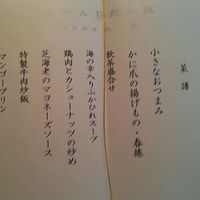 菜譜
小さなおつまみ
かに爪の揚げもの・春捲
飲茶盛合せ
海の幸入りふかひれスープ
鶏肉とカシューナッツの炒め
芝海老のマヨネーズソース
特製牛肉炒飯
マンゴープリン